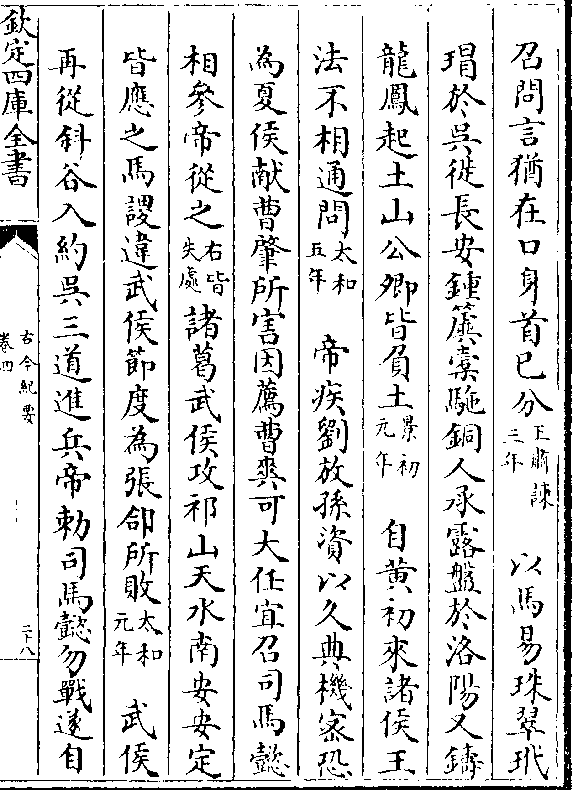 召問言猶在口身首已分王肅諫三年　以馬易珠翠玳
瑁於吳徙長安鍾簴橐駝銅人承露盤於洛陽又鑄
龍鳳起土山公卿皆負土景初元年　自黃初來諸侯王
法不相通問太和五年　帝疾劉放孫資以久典機宻恐
為夏侯献曹肇所害因薦曹爽可大任宜召司馬懿
相參帝從之右皆失處　諸葛武侯攻祁山天水南安安定
皆應之馬謖違武侯節度為張郃所敗太和元年　武侯
再從斜谷入約吳三道進兵帝勅司馬懿勿戰遂自
欽定四庫全書
古今紀要
卷四
二十八